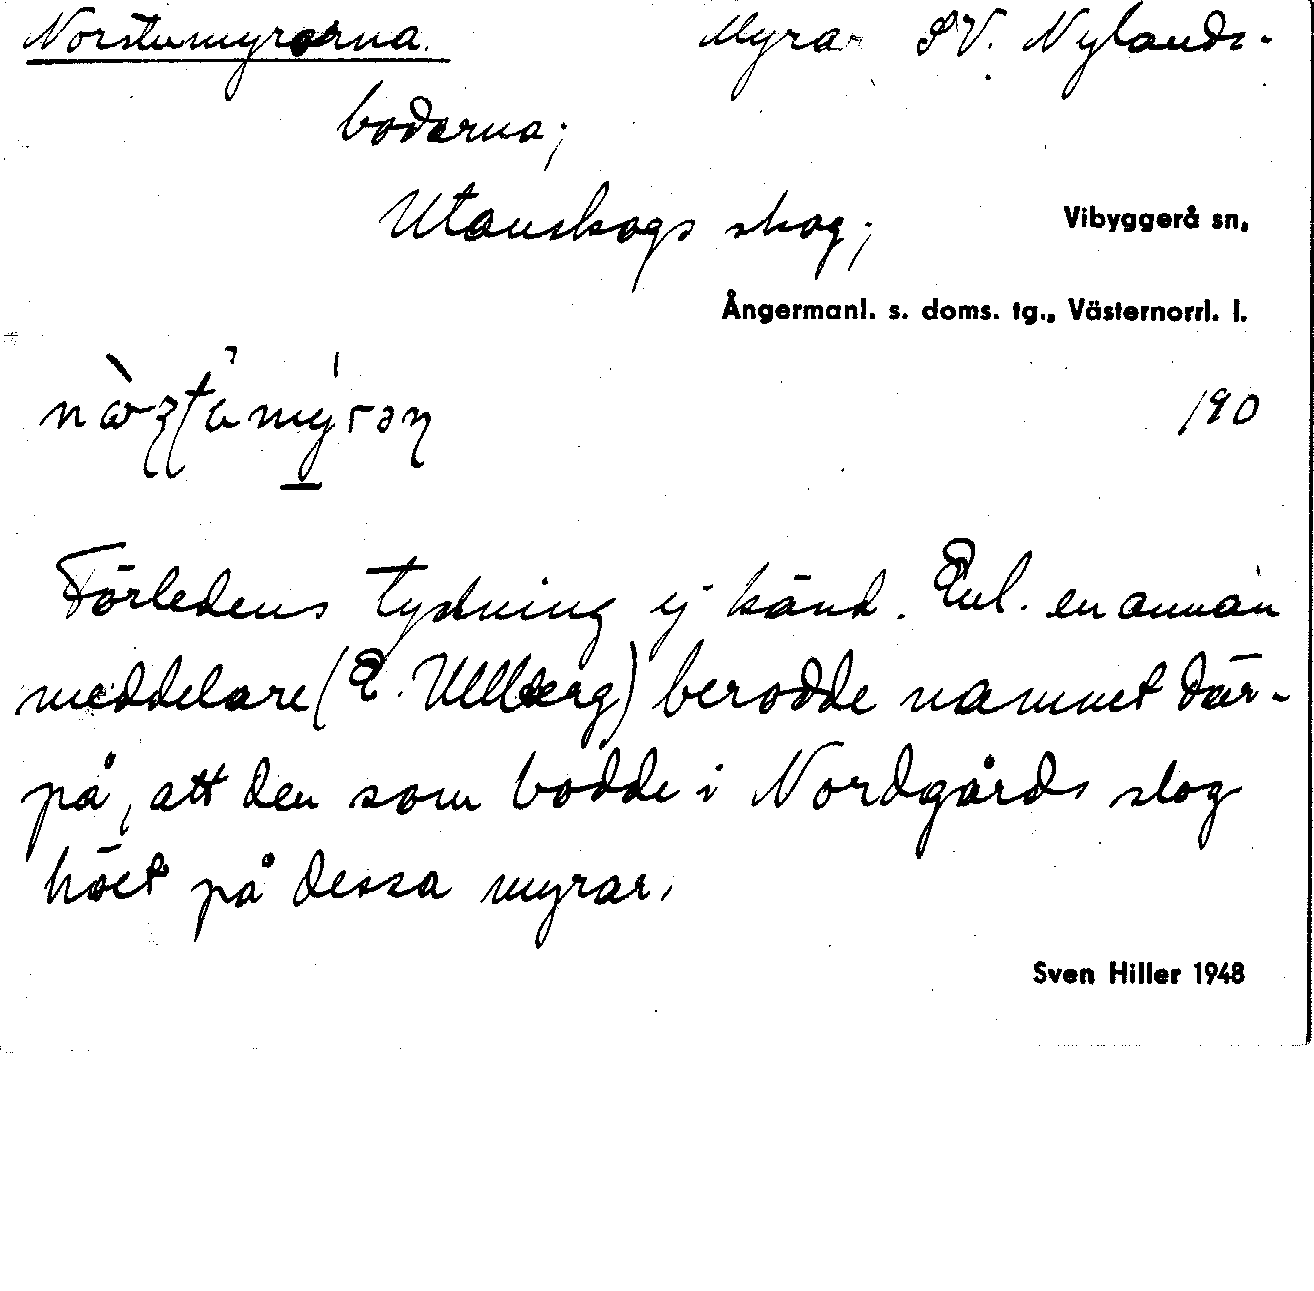 Norstumyrarna. Myrar SV. Nylands-
boderna;
Utanskogs skog; Vibyggerå sn,
Ångermanl. s. doms. tg., Västernorrl. l.
190
Förledens tydning ej känd. Enl. en annan
meddelare (E. Ullberg) berodde namnet där-
på, att den som bodde i Nordgårds skog
höet på dessa myrar.
Sven Hiller 1948